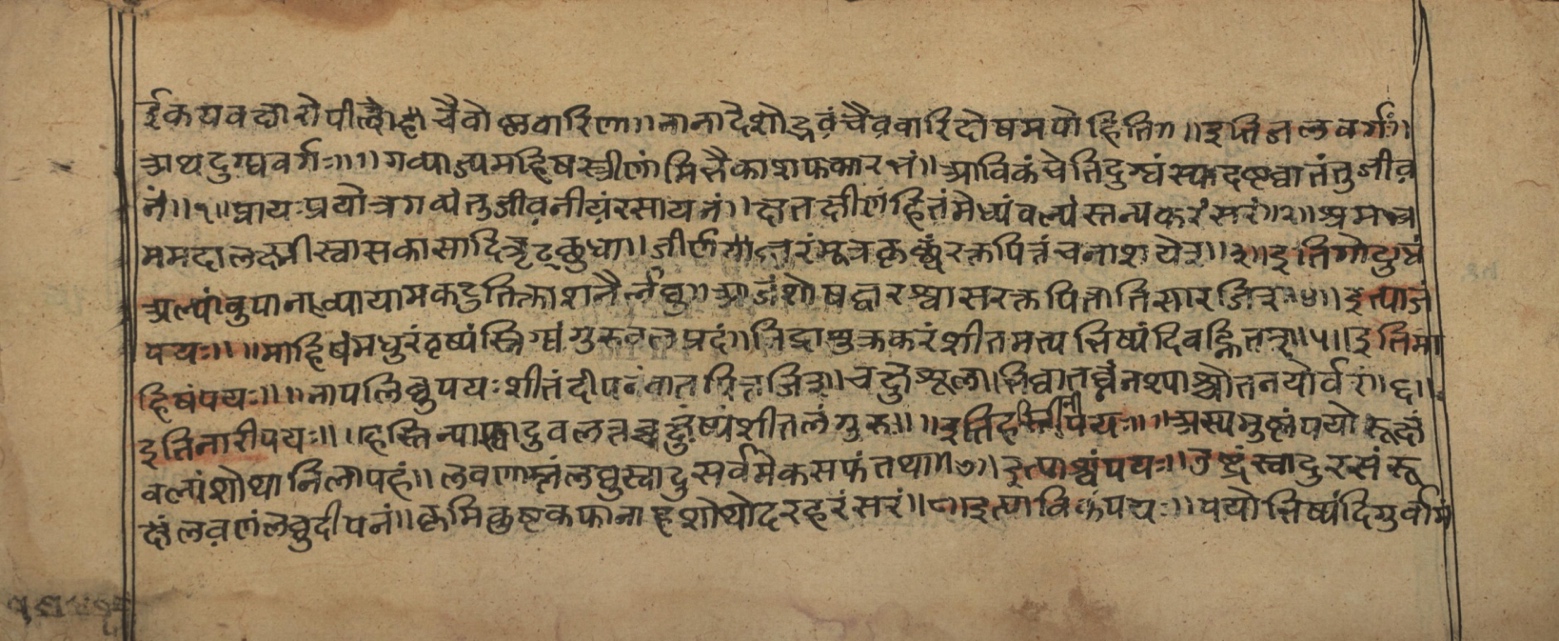 र्द्रकयवक्षारोपीत्वौह्रौ चैवोष्णवारिणा ॥ नानादेशोद्भवं चैव वारिदोषमपोहिति १ ॥ इति जलवर्गः ॥
अथ दुग्धवर्गः ॥ १ ॥ गव्याज्यमहिषस्त्रीणां मिभैकाशफकारभं ॥ आविकं चेति दुग्धं स्यादष्टधातंतु जीव
नं ॥ १ ॥ प्रायः प्रयोत्रगव्यंतु जीवनीयं रसायनं ॥ क्षतक्षीणहितं मेध्यं वल्यं स्तन्यकरं सरं ॥ २ ॥ श्रमभ्र
ममदालक्ष्मीस्वासकासादितृट्क्षुधा ॥ जीर्णज्वरं मूत्रकृछ्रं रक्तपित्तं च नाशयेत् ॥ ३ ॥ इति गोदुग्धं
अल्पांवुपानाव्यायामकटुतिक्ताशनैर्लघु ॥ आजं शोषज्वरश्वासरक्तपित्तातिसारजित् ॥ ४ ॥ इत्याजं
पयः ॥ ॥ माहिषं मधुरं वृष्यं स्निग्धं गुरु वलप्रदं ॥ निद्राशुक्रकरं शीतमत्यभिष्यंदिवह्निजित् ॥ ५ ॥ इति मा
हिषं पयः ॥ ॥ नार्या लघु पयः शीतं दीपनं वातपित्तजित् ॥ चक्षुशूलाभिघातघ्नं नश्याश्च्योतनयोर्वरं ॥ ६ ॥
इति नारीपयः ॥ ॥ हस्तिन्या स्वादु वलतच्चक्षुष्यं शीतलं गुरु ॥ ॥ इति हस्तिनीपयः ॥ ॥ अस्यमुष्णं पयो रूक्षं
वल्यं शोथानिलापहं ॥ लवणाम्लं लघु स्वादु सर्वमेकसफं तथा ॥ ७ ॥ इत्याश्वं पयः ॥ उष्ट्रं स्वादुरसं रू
क्षं लवणं लघु दीपनं ॥ कृमिकुष्टकफानाहशोथोदरहरं सरं ॥ ८ ॥ इत्याविकं पयः ॥ पयोभिष्यंदि गुर्वामं